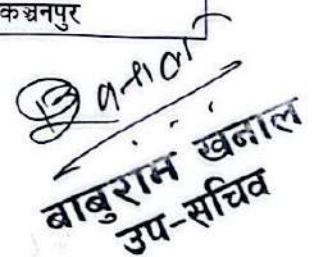 कञ्चनपुर
बाबुराम खनाल
उप-सचिव